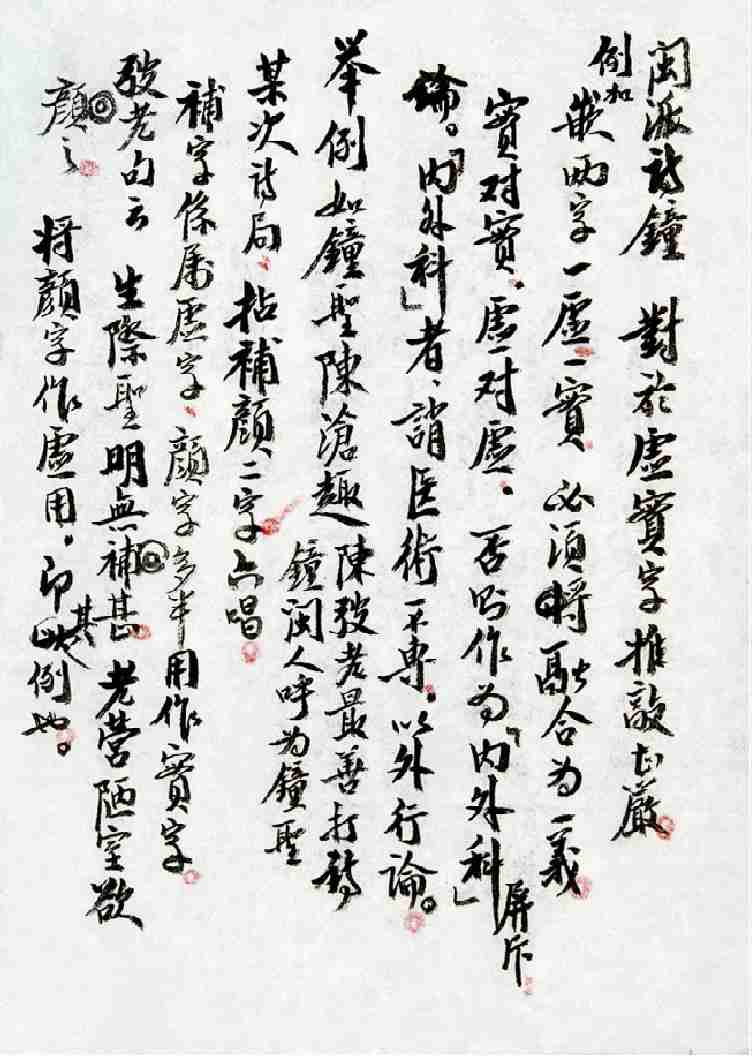 閩派詩鐘 對於虛實字推敲甚嚴。
例如嵌兩字一虛一實、必須將融合為一義。
實对實、虛对虛。否則作為「內外科」屏斥
論。「內外科」者、誚医術不專。以外行論。
举例如鐘聖陳滄趣 陳弢老最善打詩
鐘閩人呼為鐘聖
某次詩局、拈補顏二字六唱。
補字係属虛字、顏字多半用作實字。
弢老句云 生際聖明無補甚。老營陋室欲
顏之。 将顏字作虛用。即其例也。